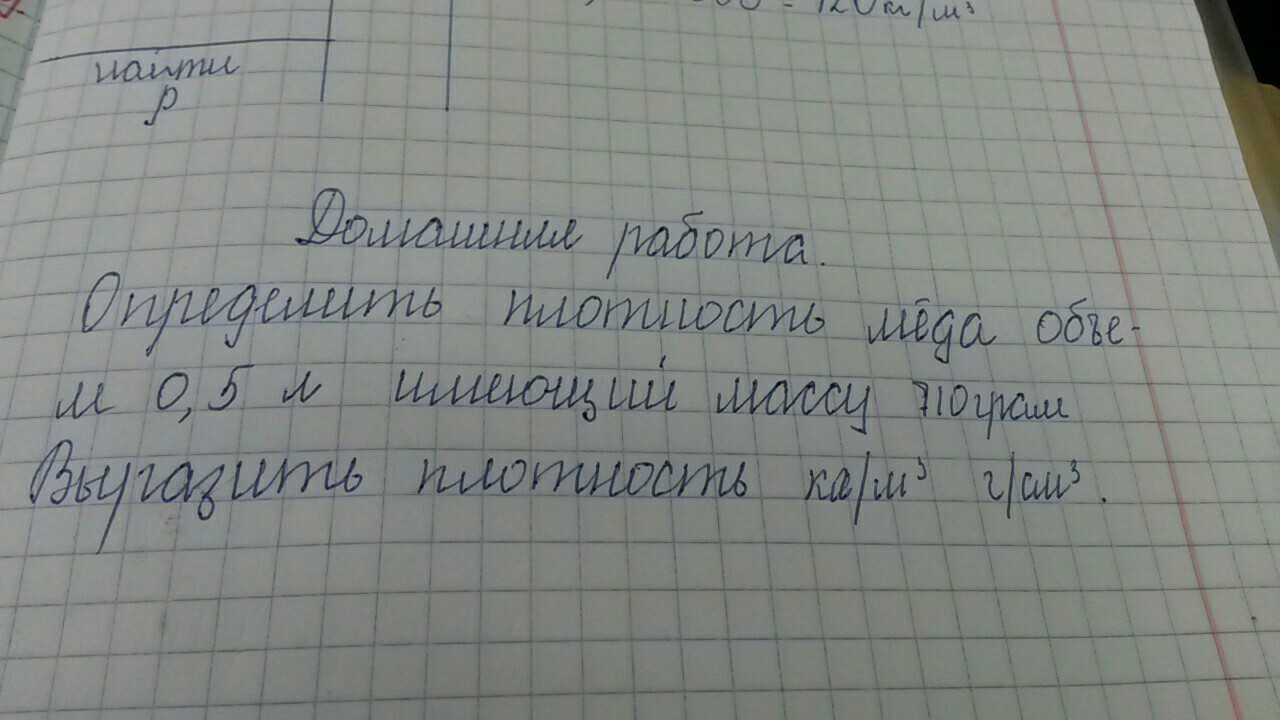 = 120кг/м³
найти
ρ
Домашняя работа.
Определить плотность мёда объе-
м 0,5 л имеющий массу 710грам
Выразить плотность кг/м³ г/см³.